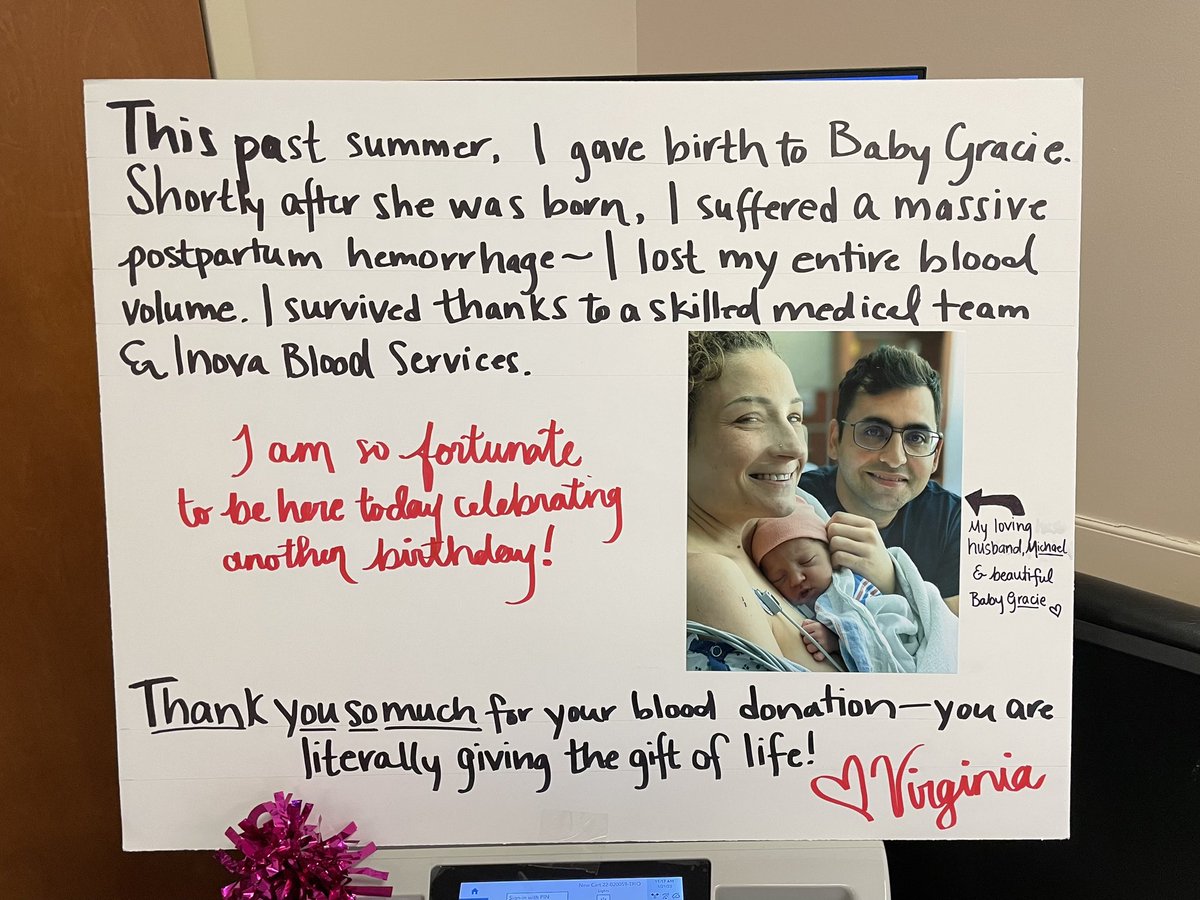 This past summer, I gave birth to Baby Gracie.
Shortly after she was born, I suffered a massive
postpartum hemorrhage~ I lost my entire blood
volume. I survived thanks to a skilled medical team
& Inova Blood Services.
I am so fortunate
to be here today celebrating
another birthday!
My loving
husband, Michael
& beautiful
Baby Gracie ♡
Thank you so much for your blood donation—you are
literally giving the gift of life!
♡ Virginia
New Cart 22-020059-TRIO
Sign in with PIN
Lights